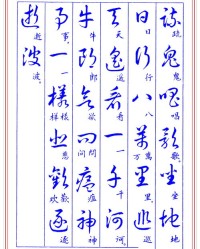 疏鬼唱歌坐地
日行八萬里巡
天遥看一千河
牛郎欲问瘟神
事一樣悲歡逐
逝波